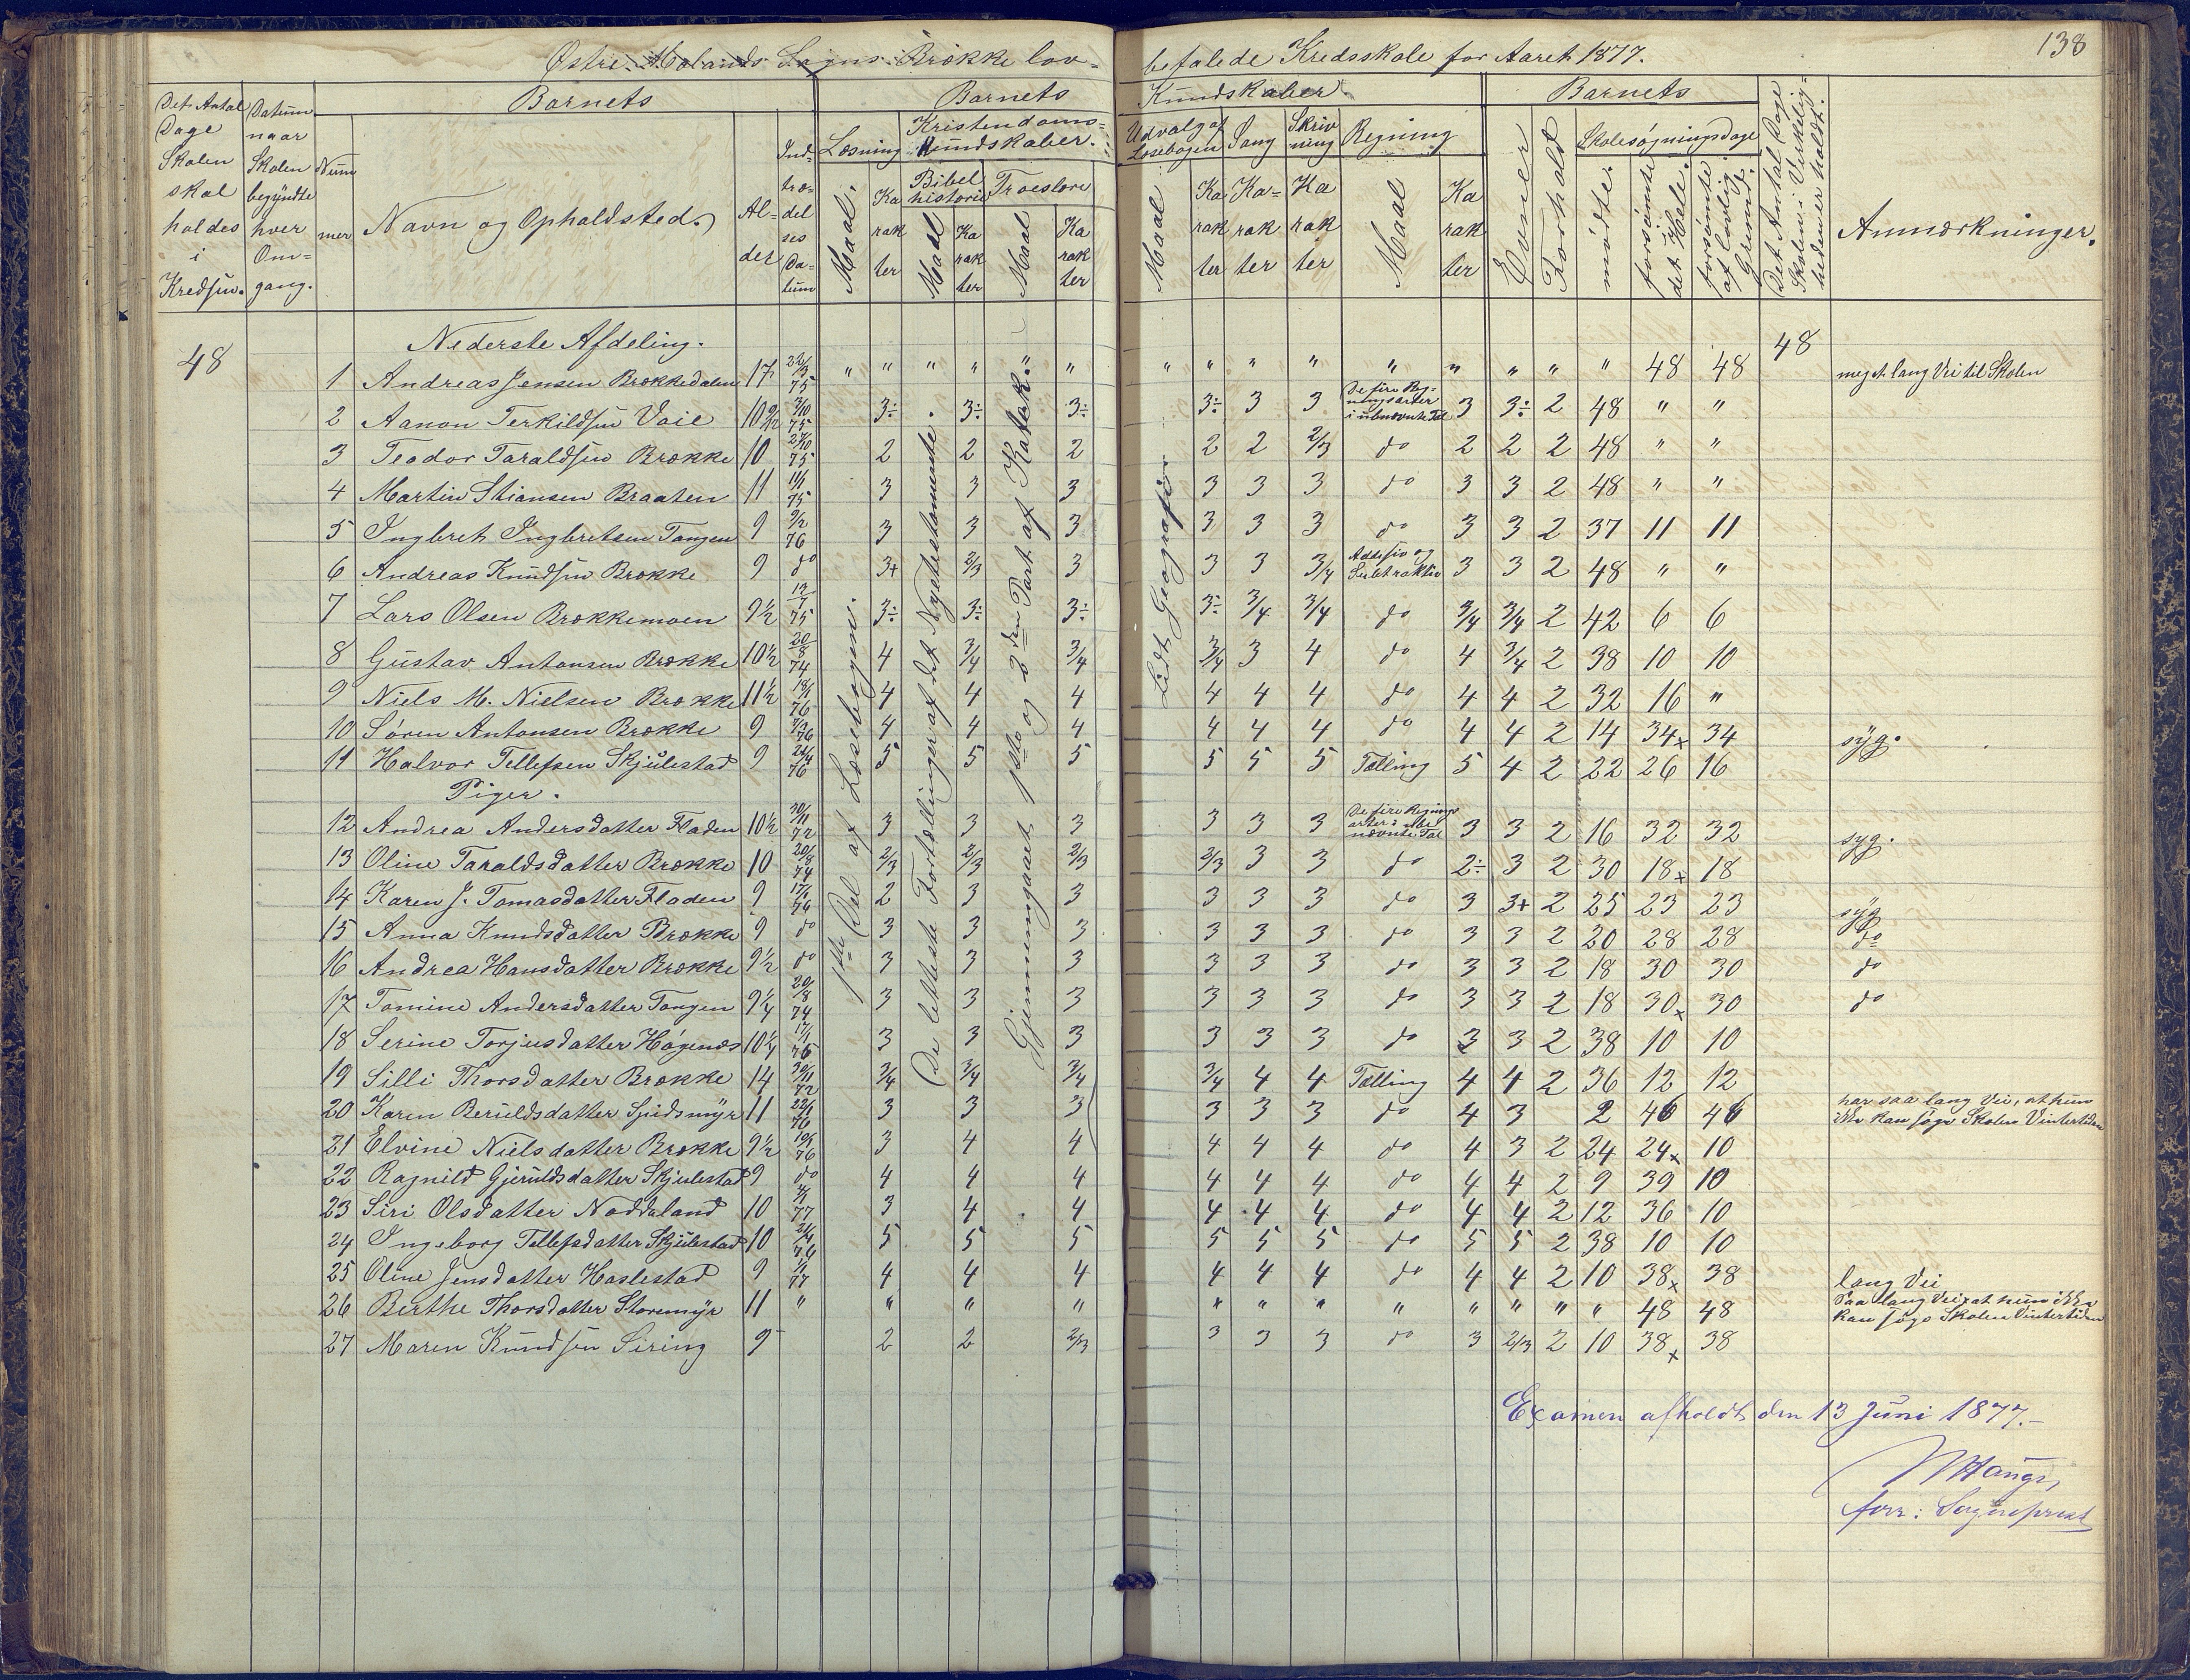 138
Østre Molands Sogns Brække lov-
befalede Kredsskole for Aaret 1877.
Det Antal Dage Skolen skal holdes i Kredsen.
Datum naar Skolen begyndte hver Om-gang.
Barnets
Num mer
Navn og Opholdsted.
Al-der
Ind-træ-del ses Da-tum
Barnets
Kundskaber.
Læsning
Maal.
Ka rak ter
Kristendoms-kundskaber.
Bibel historie
Maal
Ka rak ter
Troeslære
Maal
Ka rak ter
Udvalg af Læsebogen
Maal
Ka rak ter
Sang
Ka-rak ter
Skriv ning
Ka rak ter
Regning
Maal
Ka rak ter
Barnets
Evner
Forhold
Skolesøgningsdage
mødte.
forsømte det Hele.
forsømte af lovlig Grund.
Det Antal Dage Skolen i Virkelig-heden er holdt.
Anmærkninger.
1ste Del af Læsebogen.
De letteste Fortællinger af det Nytestamente.
Gjennemgaaet 1ste og 2den Part af Katek.
Lidt Geografi
Nederste Afdeling.
48 48
1 Andreas Jensen Brækkedalen 17 22/3 75 " " " " " " " " " " " " " " " 48 48 meget lang Vei til Skolen
2 Aanon Terkildsen Vaie 10 1/2 3/10 75 3÷ 3÷ 3÷ 3÷ 3 3 De fire Reg-ningsarter i ubenævnte Tal 3 3÷ 2 48 " "
3 Teodor Taraldsen Brække 10 2/10 75 2 2 2 2 2 2/3 do 2 2 2 48 " "
4 Martin Stiansen Braaten 11 11/1 75 3 3 3 3 3 3 do 3 3 2 48 " "
5 Ingbret Ingbretsen Tangen 9 9/2 76 3 3 3 3 3 3 do 3 3 2 37 11 11
6 Andreas Knudsen Brække 9 do 3+ 2/3 3 3 3 3/4 Addesiv og Subtraktiv 3 3 2 48 " "
7 Lars Olsen Brækkemoen 9 1/2 12/7 75 3÷ 3÷ 3÷ 3÷ 3/4 3/4 do 3/4 3/4 2 42 6 6
8 Gustav Antonsen Brække 10 1/2 20/8 74 4 3/4 3/4 3/4 3 4 do 4 3/4 2 38 10 10
9 Niels M. Nielsen Brække 11 1/2 18/1 76 4 4 4 4 4 4 do 4 4 2 32 16 "
10 Søren Antonsen Brække 9 7/2 76 4 4 4 4 4 4 do 4 4 2 14 34x 34 syg.
11 Halvor Tellefsen Skjulestad 9 24/4 76 5 5 5 5 5 5 Tælling 5 4 2 22 26 16
Piger.
12 Andrea Andersdatter Fladen 10 1/2 30/11 72 3 3 3 3 3 3 De fire Regnings arter i ube nævnte Tal 3 3 2 16 32 32 syg.
13 Oline Taraldsdatter Brække 10 20/8 74 2/3 2/3 2/3 2/3 3 3 do 2÷ 3 2 30 18x 18
14 Karen J. Tomasdatter Fladen 9 17/1 76 2 3 3 3 3 3 do 3 3+ 2 25 23 23 syg
15 Anna Knudsdatter Brække 9 do 3 3 3 3 3 3 do 3 3 2 20 28 28 do
16 Andrea Hansdatter Brække 9 1/2 do 3 3 3 3 3 3 do 3 3 2 18 30 30 do
17 Tomine Andersdatter Tangen 9 1/4 20/8 74 3 3 3 3 3 3 do 3 3 2 18 30x 30 do
18 Serine Torjusdatter Høgenæs 10 1/4 17/1 76 3 3 3 3 3 3 do 3 3 2 38 10 10
19 Silli Thorsdatter Brække 14 30/11 72 3/4 3/4 3/4 3/4 4 4 Tælling 4 4 2 36 12 12
20 Karen Beruldsdatter Spidsmyr 11 22/1 76 3 3 3 3 3 3 do 4 3 2 46 46 har saa lang Vei, at hun ikke kan søge Skolen Vintertiden
21 Elvine Nielsdatter Brække 9 1/2 19/1 76 3 4 4 4 4 4 do 4 3 2 24 24x 10
22 Ragnild Gjeruldsdatter Skjulestad 9 do 4 4 4 4 4 4 do 4 4 2 9 39 10
23 Siri Olsdatter Naddaland 10 4/1 77 3 4 4 4 4 4 do 4 4 2 12 36 10
24 Ingeborg Tellefsdatter Skjulestad 10 24/4 76 5 5 5 5 5 5 do 5 5 2 38 10 10
25 Oline Jensdatter Haslestad 9 1/1 77 4 4 4 4 4 4 do 4 4 2 10 38x 38 lang Vei
26 Birthe Thorsdatter Storemyr 11 " " " " " " " " " " " " 48 48 Saa lang Vei, at hun ikke kan søge Skolen Vintertiden
27 Maren Knudsen Siring 9 2 2 2/3 3 3 3 do 3 2/3 2 10 38x 38
Examen afholdt den 13 Juni 1877.-
Hauge,
forr: Sognepræst